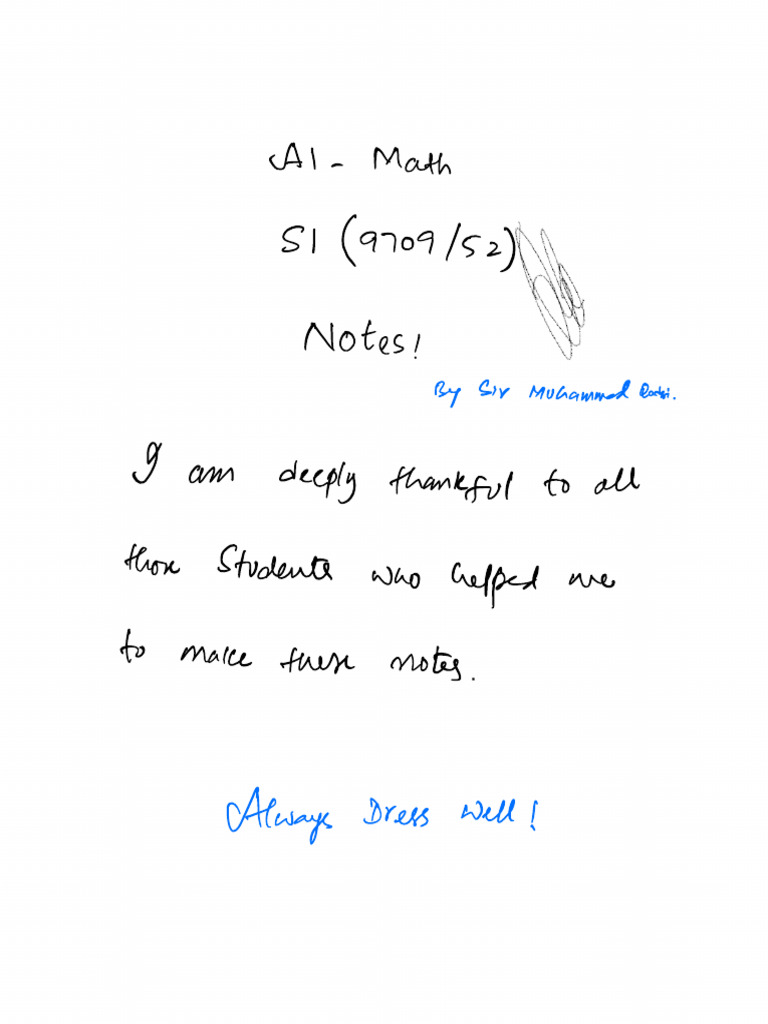 A1 - Math
S1 (9709/52)
Notes!
By Sir Muhammad
I am deeply thankful to all
those Students who helped me
to make these notes.
Always Dress Well!